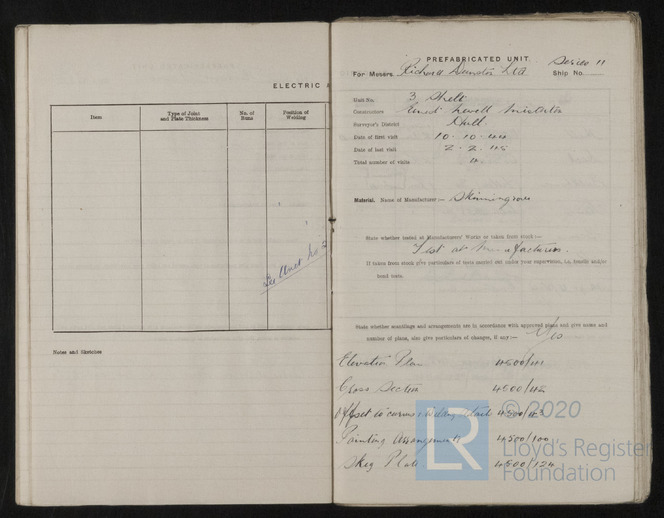 ELECTRIC
Item
Type of Joint
and Plate Thickness
No. of
Runs
Position of
Welding
See Unit No 2
Notes and Sketches
PREFABRICATED UNIT
Series 11
For Messrs Richard Dunston Ltd.
Ship No.
Unit No. 3
Constructors Lewell
Surveyor's District Hull
Date of first visit 10.10.44
Date of last visit 2.2.45
Total number of visits 4.
Material. Name of Manufacturer:— Skinningrove
State whether tested at Manufacturers' Works or taken from stock:—
Test at Manufacturers.
If taken from stock give particulars of tests carried out under your supervision, i.e. tensile and/or
bend tests.
State whether scantlings and arrangements are in accordance with approved plans and give name and
number of plans, also give particulars of changes, if any:— Yes
Elevation Plan 4500/41
Cross Section 4500/42
Offset 4500/43
Painting Arrangements 4500/100
Skeg Plate 4500/124
LR
© 2020
Lloyd's Register
Foundation